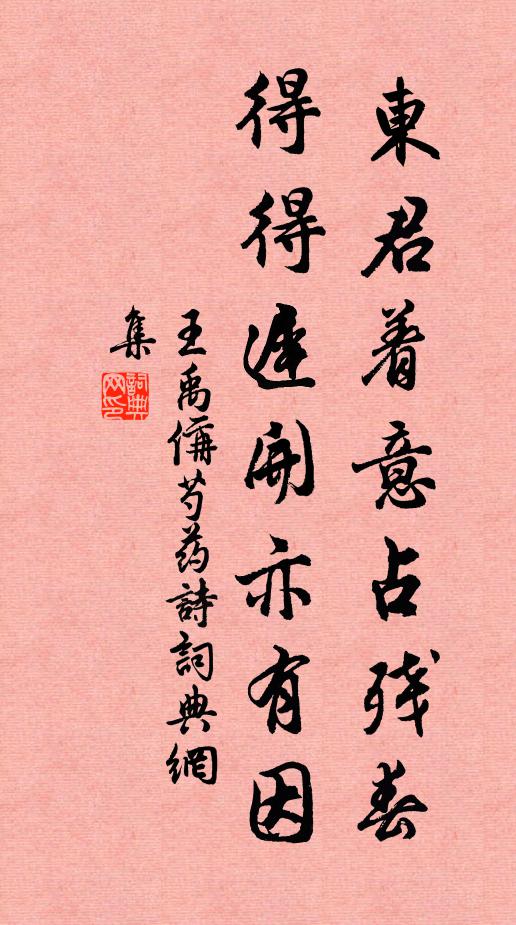 東君着意占残春
得得遲開亦有因
王禹偁芍药詩詞典網
集
詞典網印